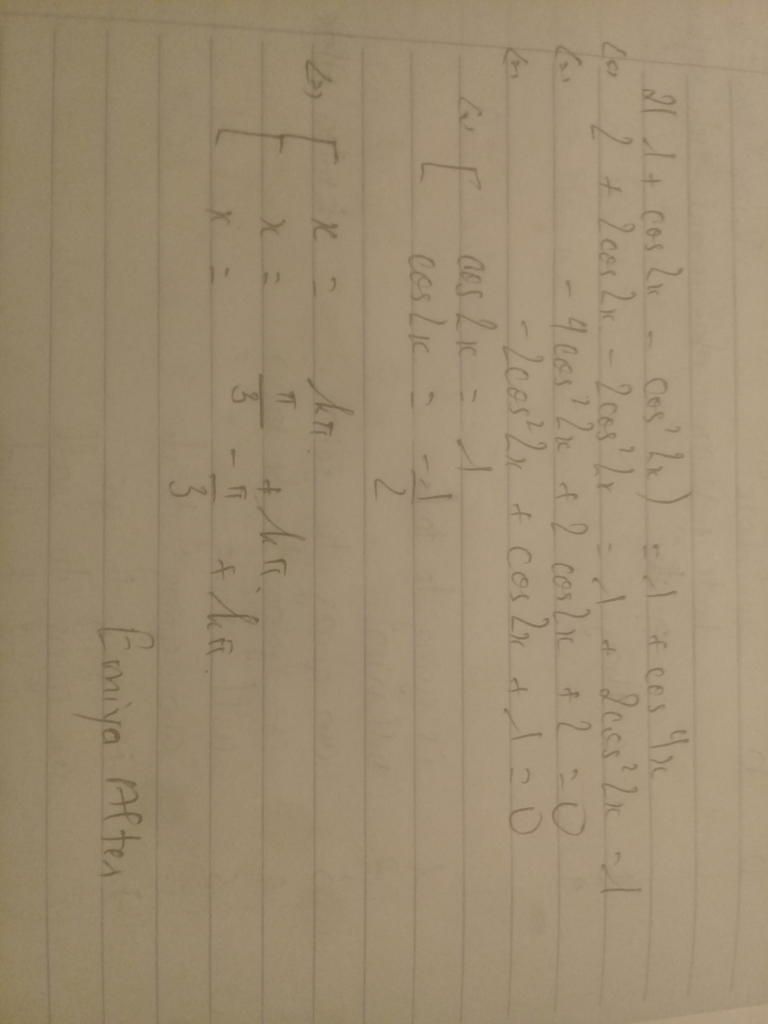 2(1 + cos2x - cos²2x) = 1 + cos4x
<=> 2 + 2cos2x - 2cos²2x = 1 + 2cos²2x - 1
<=> -4cos²2x + 2cos2x + 2 = 0
<=> -2cos²2x + cos2x + 1 = 0
<=> [ cos2x = 1
cos2x = -1/2
<=> [ x = kπ
x = π/3 + kπ
x = -π/3 + kπ
Emiya Alter